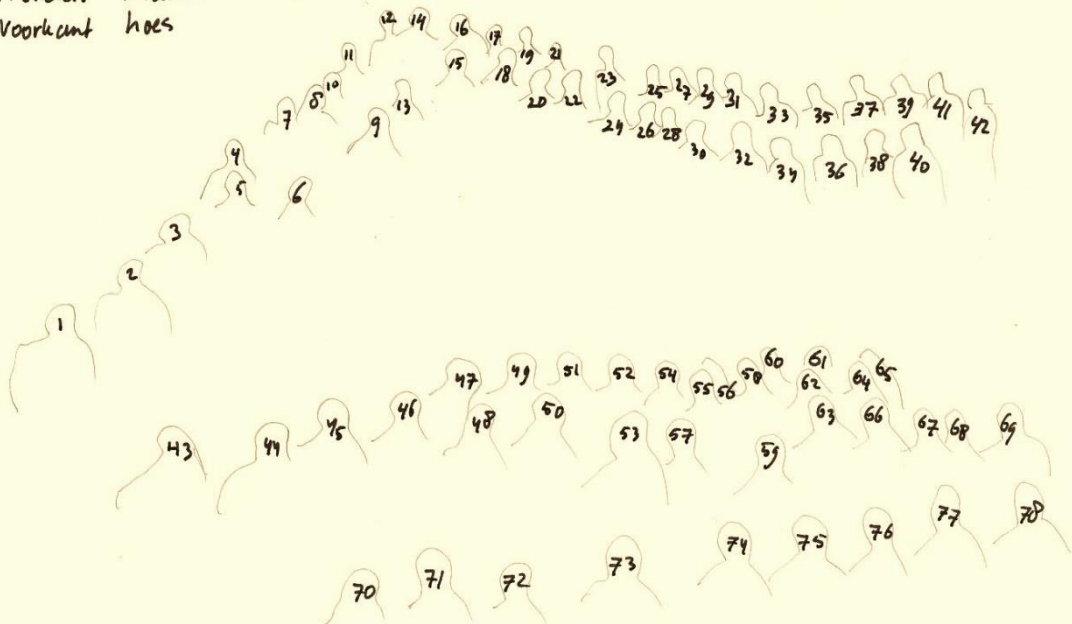 Voorkant hoes
12 14 16 17 19 21
11 15 18 23
10 8 13 20 22 25 27 29 31 33 35 37 39 41 42
7 9 24 26 28 30 32 34 36 38 40
4
5 6
3
2
1
47 49 51 52 54 55 56 58 60 61 62 64 65
46 48 50 63 66
43 44 45 53 57 59 67 68 69
70 71 72 73 74 75 76 77 78